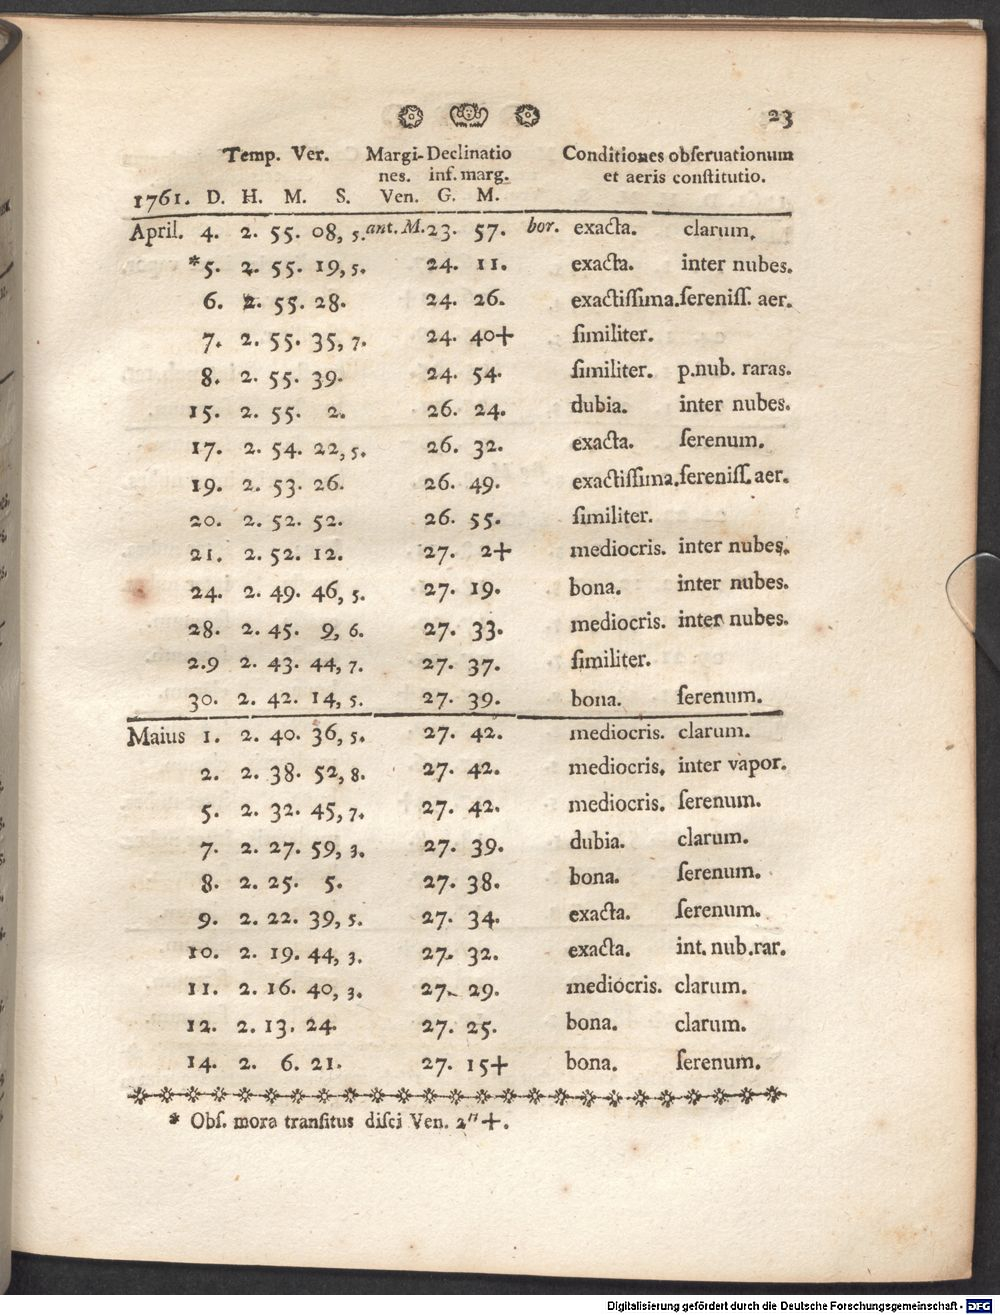 23
Temp. Ver. Margi- Declinatio Conditiones obſeruationum
nes. inf. marg. et aeris conſtitutio.
1761. D. H. M. S. Ven. G. M.
April. 4. 2. 55. 08, 5. ant. M. 23. 57. bor. exacta. clarum.
*5. 2. 55. 19, 5. 24. 11. exacta. inter nubes.
6. 2. 55. 28. 24. 26. exactiſſima. ſereniſſ. aer.
7. 2. 55. 35, 7. 24. 40+ ſimiliter.
8. 2. 55. 39. 24. 54. ſimiliter. p. nub. raras.
15. 2. 55. 2. 26. 24. dubia. inter nubes.
17. 2. 54. 22, 5. 26. 32. exacta. ſerenum.
19. 2. 53. 26. 26. 49. exactiſſima. ſereniſſ. aer.
20. 2. 52. 52. 26. 55. ſimiliter.
21. 2. 52. 12. 27. 2+ mediocris. inter nubes.
24. 2. 49. 46, 5. 27. 19. bona. inter nubes.
28. 2. 45. 9, 6. 27. 33. mediocris. inter nubes.
2.9 2. 43. 44, 7. 27. 37. ſimiliter.
30. 2. 42. 14, 5. 27. 39. bona. ſerenum.
Maius 1. 2. 40. 36, 5. 27. 42. mediocris. clarum.
2. 2. 38. 52, 8. 27. 42. mediocris. inter vapor.
5. 2. 32. 45, 7. 27. 42. mediocris. ſerenum.
7. 2. 27. 59, 3. 27. 39. dubia. clarum.
8. 2. 25. 5. 27. 38. bona. ſerenum.
9. 2. 22. 39, 5. 27. 34. exacta. ſerenum.
10. 2. 19. 44, 3. 27. 32. exacta. int. nub. rar.
11. 2. 16. 40, 3. 27. 29. mediocris. clarum.
12. 2. 13. 24. 27. 25. bona. clarum.
14. 2. 6. 21. 27. 15+ bona. ſerenum.
* Obſ. mora tranſitus diſci Ven. 2″ +.
Digitalisierung gefördert durch die Deutsche Forschungsgemeinschaft - DFG